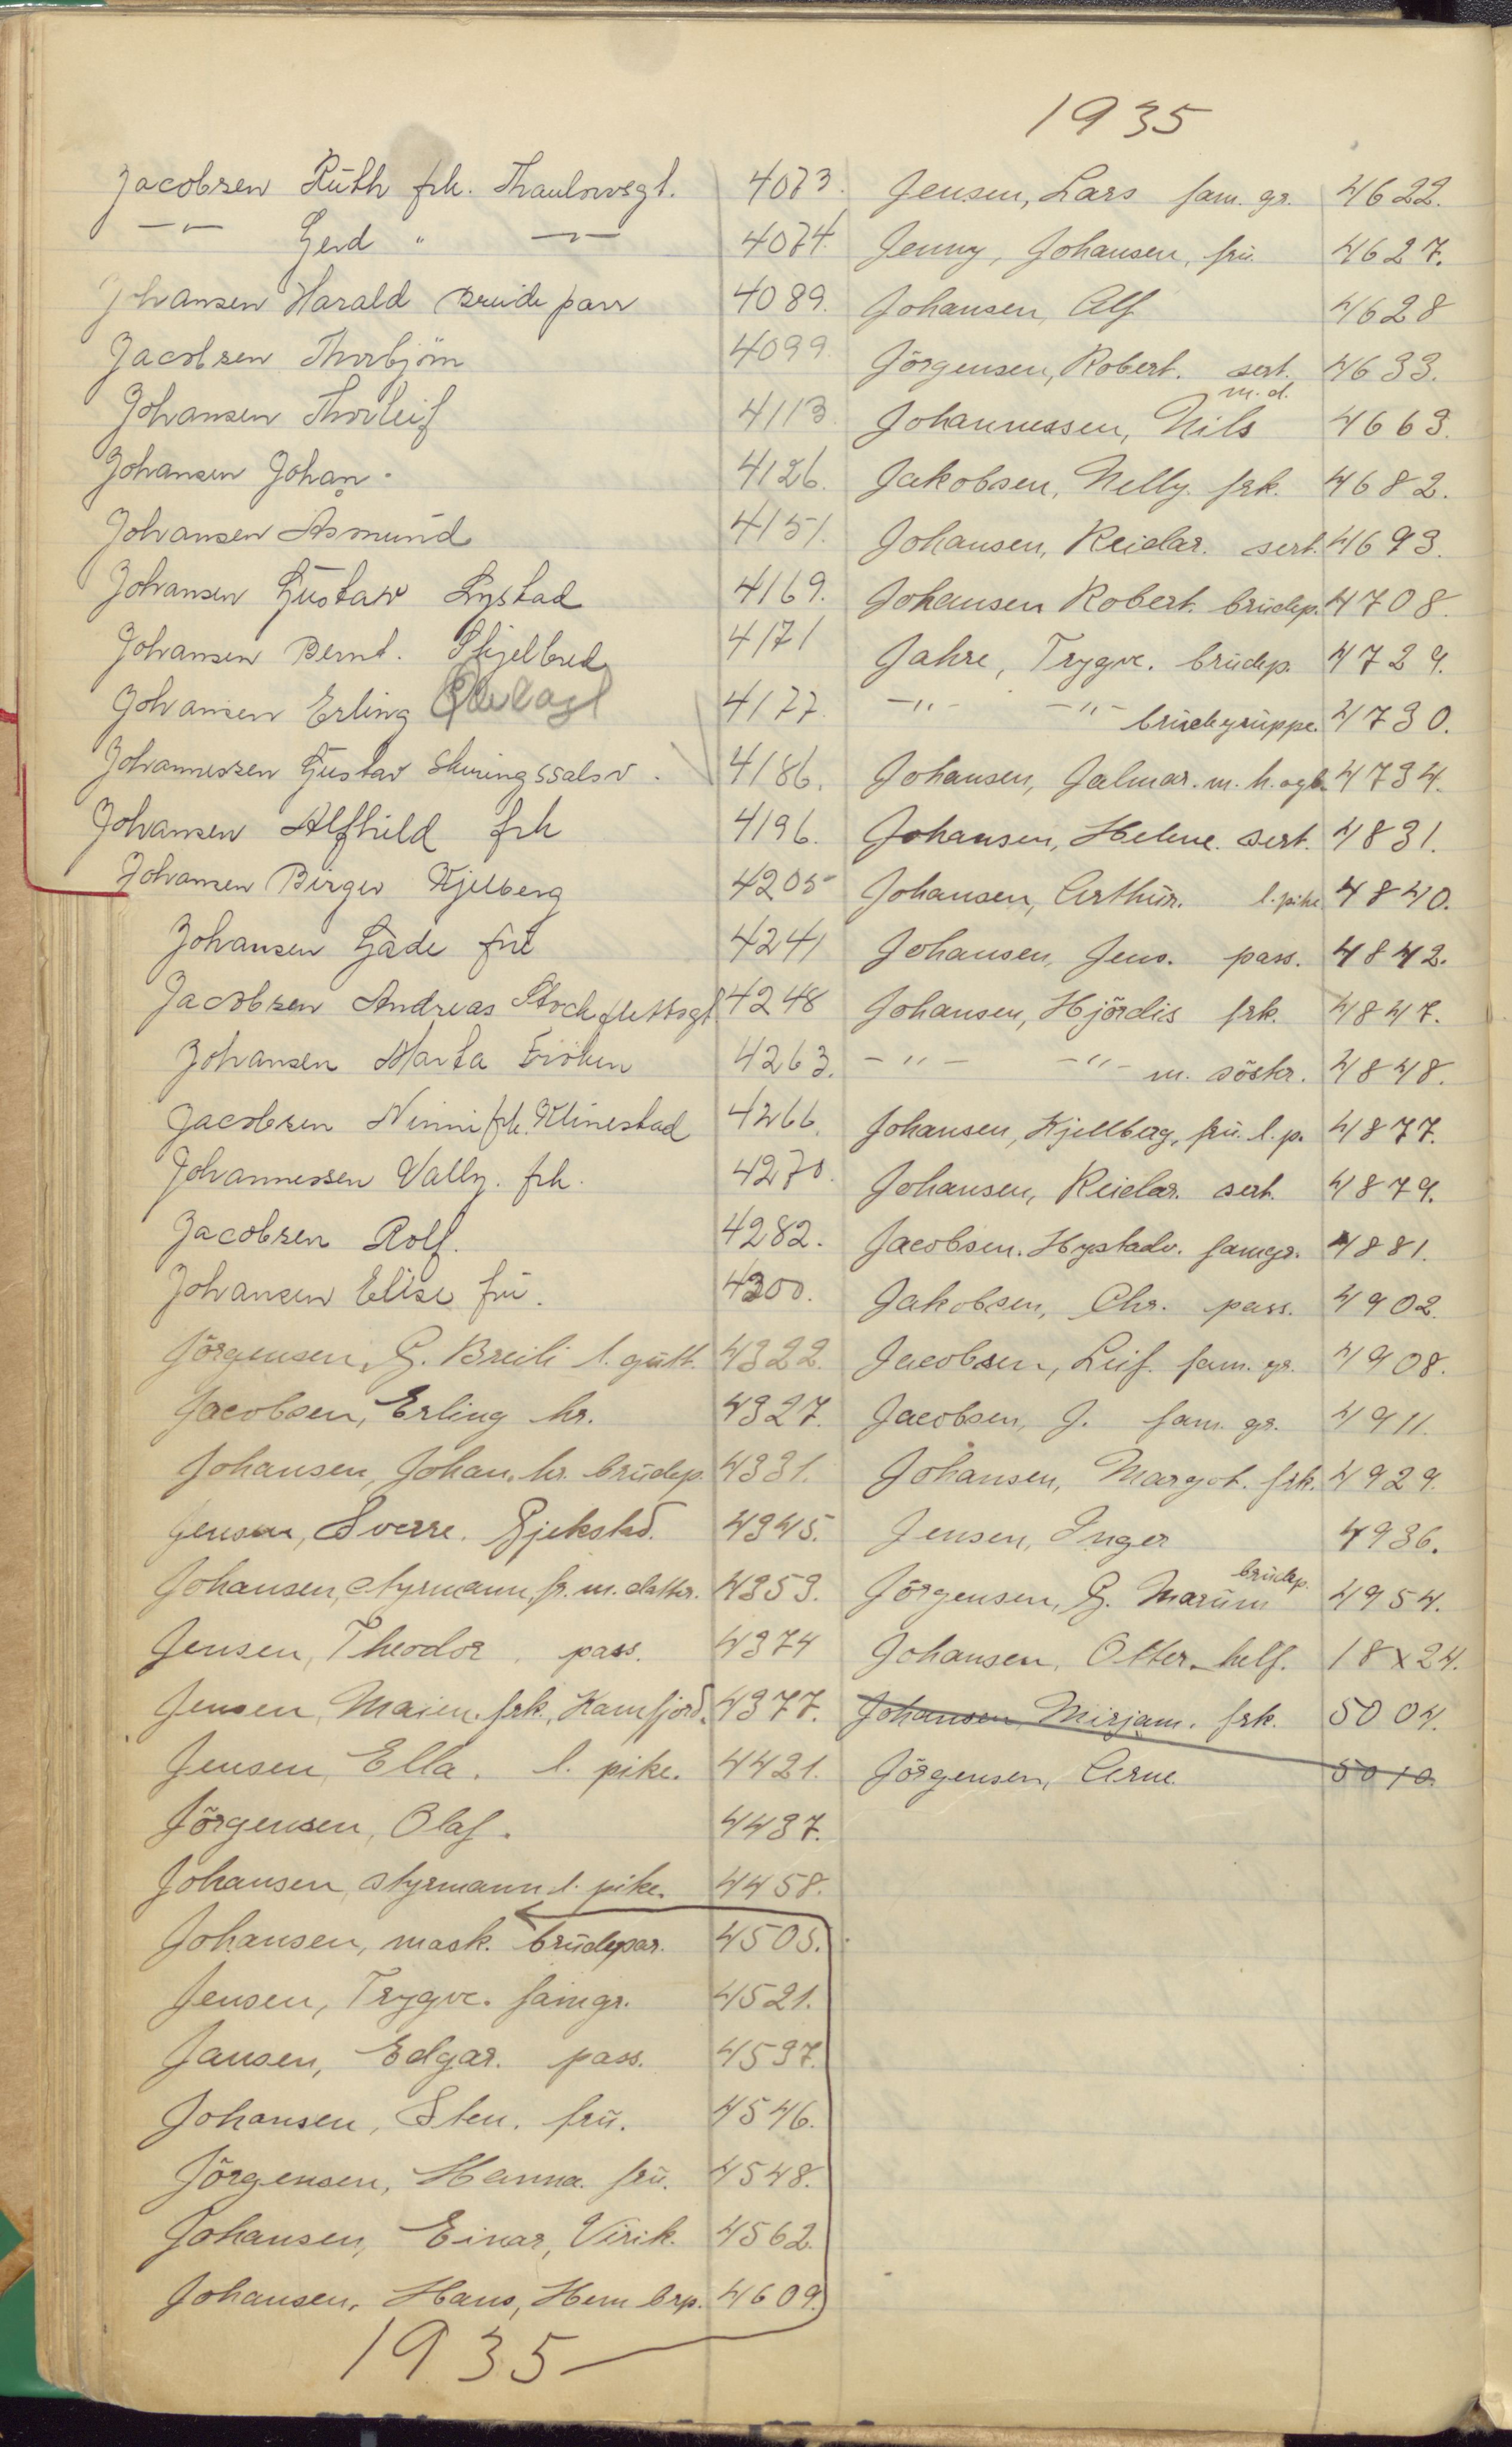 1935
Jacobsen Ruth frk. Thaulowsgt. 4073.
—"— Gerd " —"— 4074.
Johansen Harald Brudepar 4089.
Jacobsen Thorbjörn 4099.
Johansen Thorleif 4113
Johansen Johan. 4126.
Johansen Asmund 4151.
Johansen Gustav Lystad 4169.
Johansen Bernt. Skjelbred 4171
Johansen Erling 4177.
Johannessen Gustav Skiringssalsv. 4186.
Johansen Alfhild frk 4196.
Johansen Birger Kjelberg 4205
Johansen Gade frü 4241
Jacobsen Andreas Stockflethsgt. 4248
Johansen Marta Fröken 4263.
Jacobsen Ninni frk. Klinestad 4266.
Johannessen Vally. frk. 4270.
Jacobsen Rolf. 4282.
Johansen Elise frü. 4300.
Jörgensen, G. Breili l. gutt. 4322.
Jacobsen, Erling hr. 4327.
Johansen, Johan. hr. brüdep. 4331.
Jensen, Sverre. Gjekstd. 4345.
Johansen, styrmann, fr. m. dattr. 4353.
Jensen, Theodor. pass. 4374
Jensen, Maien. frk., Kamfjord. 4377.
Jensen, Ella. l. pike. 4421.
Jörgensen, Olaf. 4437.
Johansen, styrmann l. pike. 4458.
Johansen, mask. brüdepar. 4505.
Jensen, Trygve. famgr. 4521.
Jansen, Edgar. pass. 4537.
Johansen, Sten. frü. 4546.
Jörgensen, Hanna. frü. 4548.
Johansen, Einar, Virik. 4562.
Johansen, Hans, Hem brp. 4609.
1935
Jensen, Lars fam. gr. 4622.
Jenny, Johansen, frü. 4627.
Johansen, Alf 4628
Jörgensen, Robert. sert. 4633.
m.d.
Johannessen, Nils 4663.
Jakobsen, Nelly. frk. 4682.
Johansen, Reidar. sert. 4693.
Johansen Robert. brüdep. 4708.
Jahre, Trygve. brüdep. 4729.
—"— —"— brüdegrüppe. 4730.
Johansen, Jalmar. m. h. og b. 4734.
Johansen, Helene. sert. 4831.
Johansen, Arthür. l. pike 4840.
Johansen, Jens. pass. 4842.
Johansen, Hjördis frk. 4847.
—"— —"— m. söskr. 4848.
Johansen, Kjellberg, frü. l. p. 4877.
Johansen, Reidar. sert. 4879.
Jacobsen. Hystadv. famgr. 4881.
Jakobsen, Chr. pass. 4902.
Jacobsen, Leif. fam. gr. 4908.
Jacobsen, J. fam. gr. 4911.
Johansen, Margot. frk. 4929.
Jensen, Inger 4936.
brüdep.
Jörgensen, G. Marüm 4954.
Johansen, Otter. helf. 18x24.
Johansen Mirjam. frk. 5004.
Jörgensen, Arne. 5010.